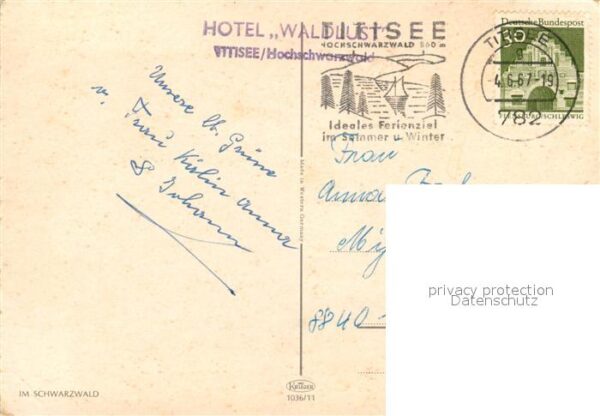 HOTEL „WALDLUST"
TITISEE/Hochschwarzwald
TITISEE
HOCHSCHWARZWALD 860 m
Ideales Ferienziel
im Sommer u Winter
TITISEE
g
-4.6.67-19
782
Deutsche Bundespost
FLENSBURG/SCHLESWIG
Unsere lb. Grüsse
v.
Frau
Anna
&
Johann
Frau
Anna
8840
Made in Western Germany
IM SCHWARZWALD
KRÜGER
1036/11
privacy protection
Datenschutz